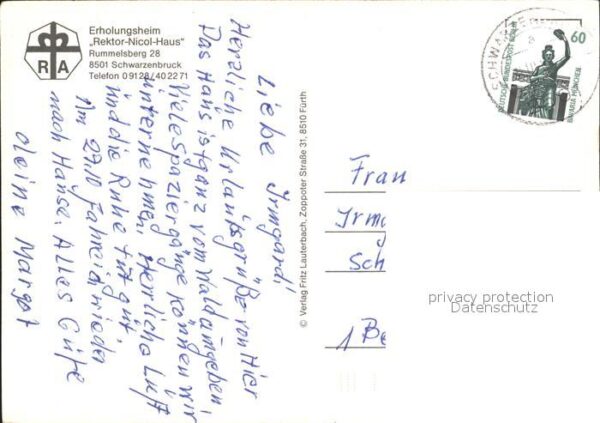 Erholungsheim
„Rektor-Nicol-Haus"
Rummelsberg 28
8501 Schwarzenbruck
Telefon 09128/402271
R A
Liebe Irmgard!
Herzliche Urlaubsgrüße von Hier
Das Haus ist ganz vom Wald umgeben,
Viele spaziergänge können wir
unternehmen, Herrliche Luft
und die Ruhe tut gut
Am 29.10 fahre ich wieder
nach Hause. Alles Gute
deine Margot
© Verlag Fritz Lauterbach, Zoppoter Straße 31, 8510 Fürth
60
DEUTSCHE BUNDESPOST BERLIN
BAVARIA MÜNCHEN
SCHWARZENBRUCK
Frau
Irmg
Sch
1 Be
privacy protection
Datenschutz